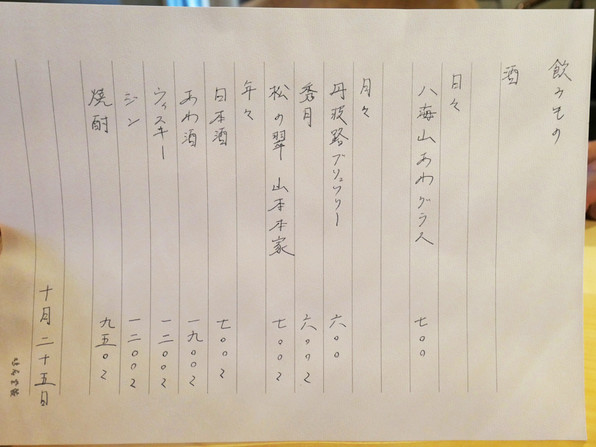 飲みもの
酒
日々
八海山あわグラス 七〇〇
月々
丹波路ブリュワリー 六〇〇
秀月 六〇〇〜
松の翠 山本本家 七〇〇〜
年々
日本酒 七〇〇〜
あわ酒 一九〇〇〜
ウィスキー 一二〇〇〜
ジン 一二〇〇〜
焼酎 九五〇〜
十月二十五日